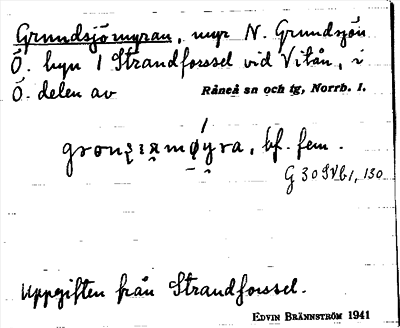 Grundsjömyran, myr N. Grundsjön
Ö. byn l Strandforssel vid Vitån, i
Ö. delen av Råneå sn och tg, Norrb. l.
bf. fem.
G 30 SVb1, 130
Uppgiften från Strandforssel.
EDVIN BRÄNNSTRÖM 1941